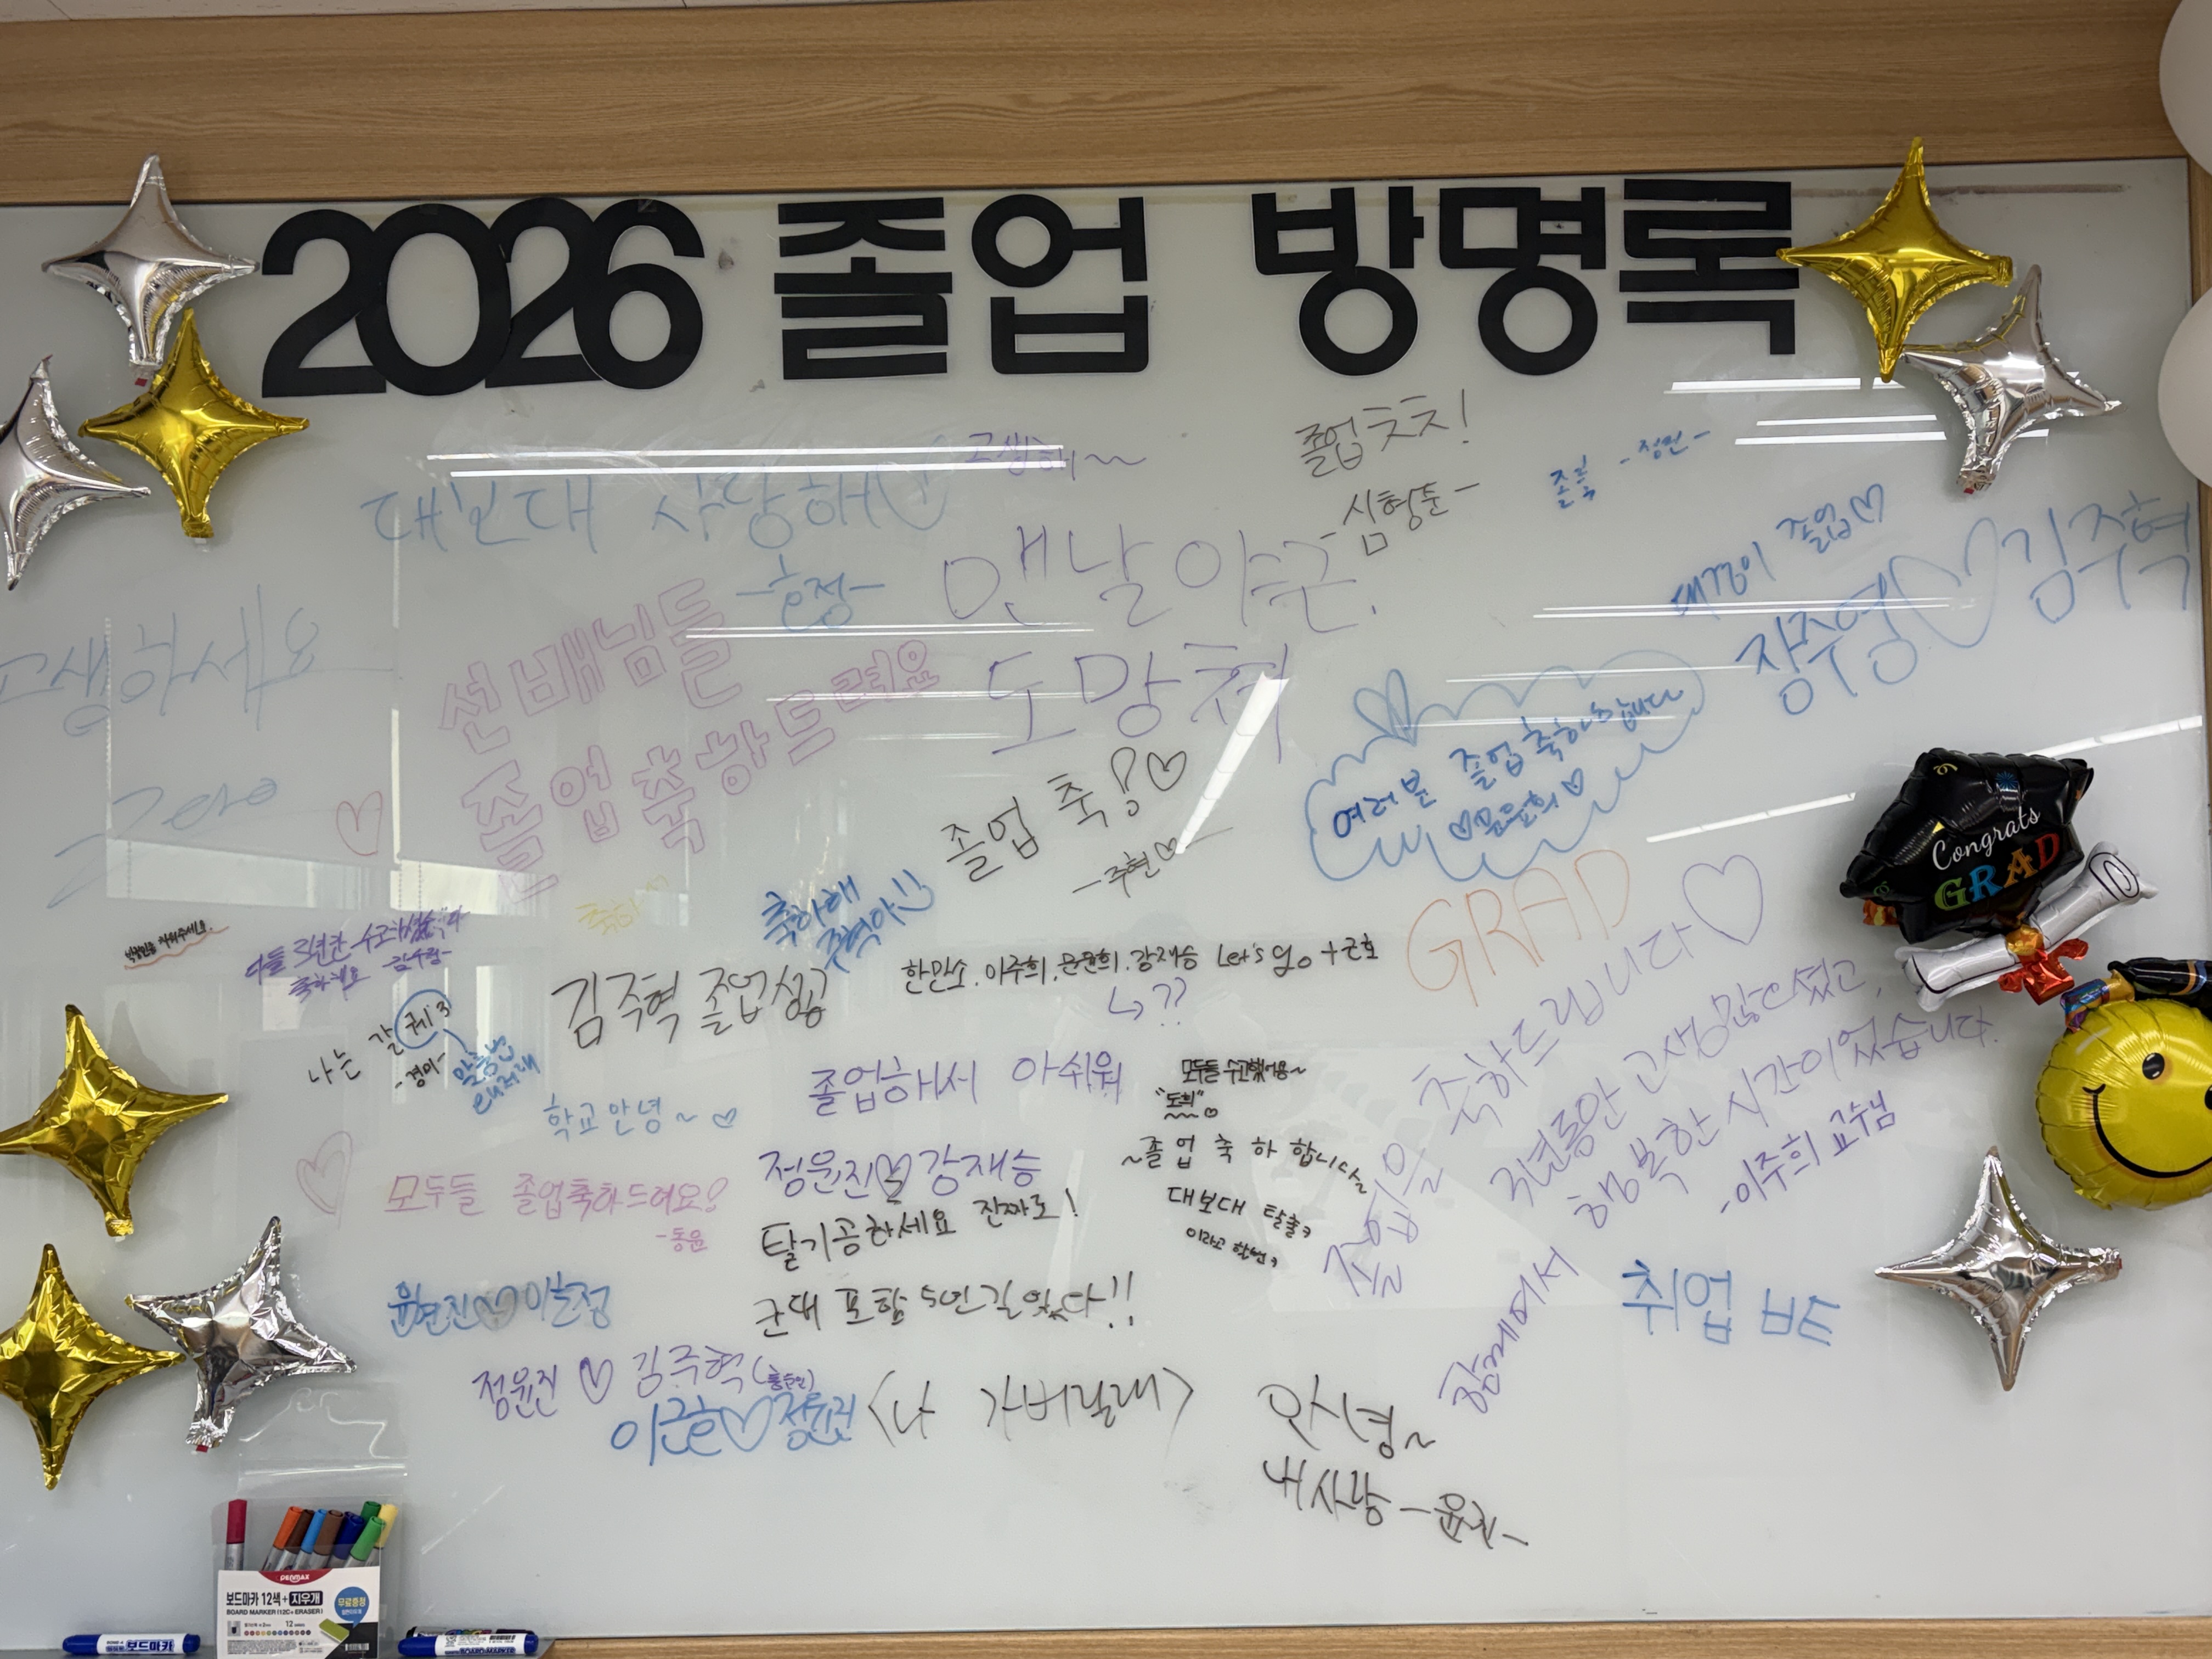 2026 졸업 방명록
졸업 ㅊㅊ!
-심형준-
고생해~~
대보대 사랑해
-효정-
졸축
-정민-
맨날 야근.
도망쳐
태경이 졸업♡
장수영♡김주혁
고생하세요
선배님들
졸업 축하드려요
여러분 졸업 축하합니다
♡문윤희♡
졸업 축!♡
-주현♡
축하해
주혁아!!
GRAD
Congrats
GRAD
다들 3년간 수고하셨습니다
축하해요 -김수림-
김주혁 졸업성공
한민소. 이주희. 문윤희. 강재승 Let's go + 근호
↳ ??
나는 갈게 3
-경이-
맞춤법
왜저래
학교 안녕~♡
졸업해서 아쉬워
모두들 수고했어용~
"도희"
~졸업 축하합니다~
대보대 탈출3
이라고 할뻔3
졸업을 축하드립니다♡
3년동안 고생 많으셨고,
함께여서 행복한 시간이었습니다.
-이주희 교수님
모두들 졸업축하드려요!
-동윤
정윤진♡강재승
탈기공하세요 진짜로!
군대 포함 5년 길었다!!
취업 뿌
윤현진♡이효정
정윤진 ♡ 김주혁
이근호♡정윤진
<나 가버릴래>
안녕~
내사랑 -윤진-
PENMAX
보드마카 12색+지우개
BOARD MARKER (12C+ERASER)
무료증정
보드마카